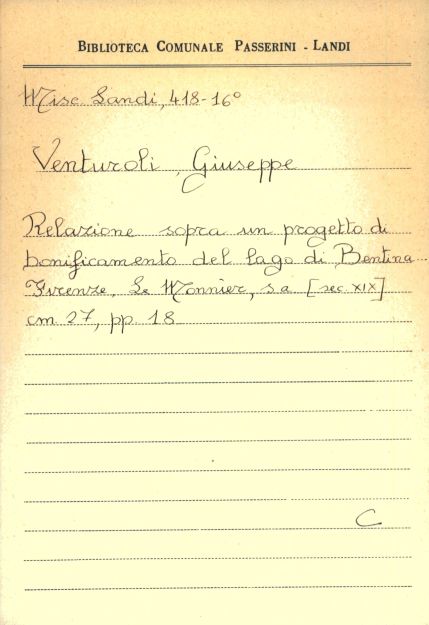 BIBLIOTECA COMUNALE PASSERINI - LANDI
Misc. Landi, 418-16°
Venturoli, Giuseppe
Relazione sopra un progetto di
bonificamento del lago di Bentina
Firenze, Le Monnier, s a [sec. XIX]
cm 27, pp. 18
C